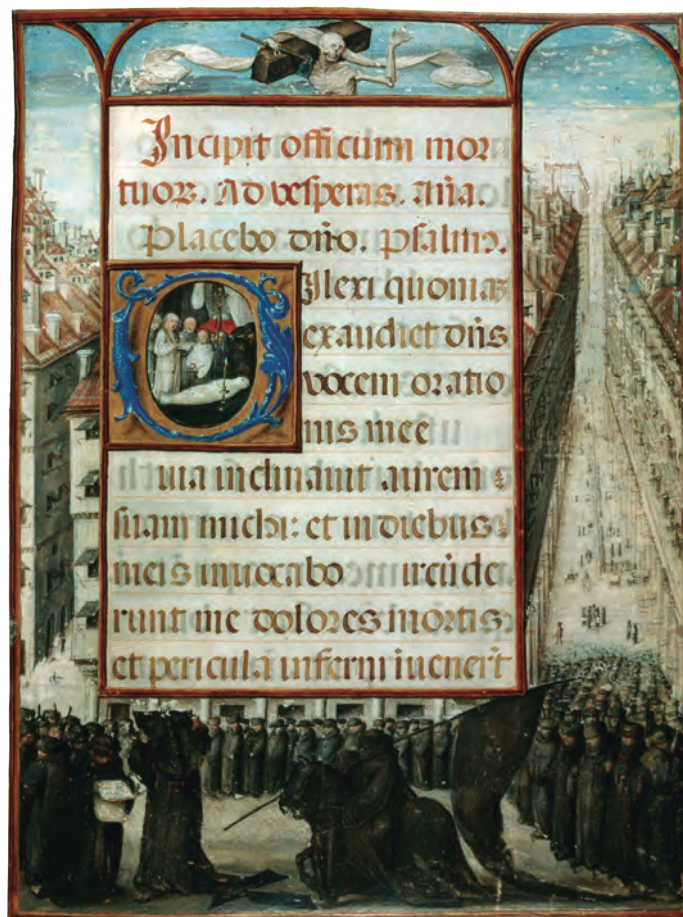 Incipit officium mor
tuoꝝ. Ad vesperas. aña.
Placebo dño. psalmꝰ.
Dilexi quoniaz
exaudiet dñs
vocem oratio
nis mee
uia inclinauit aurem
suam michi: et in diebus
meis inuocabo ircũde
runt me dolores mortis:
et pericula inferni iuener̃t